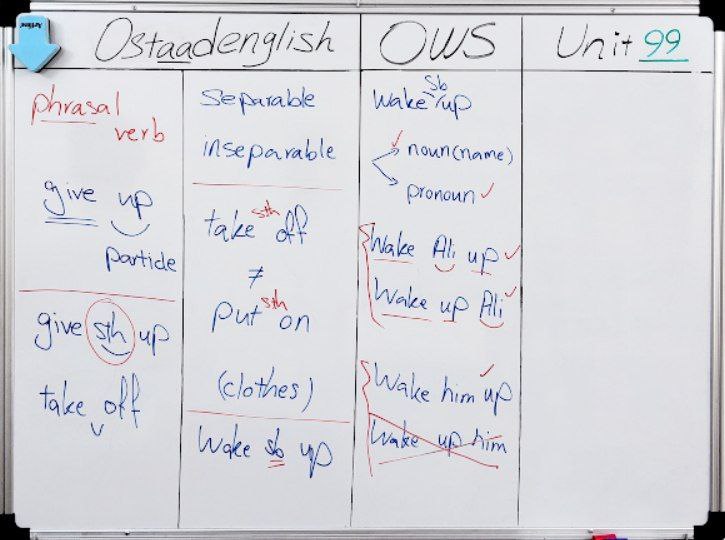 Ostaadenglish
OWS
Unit 99
phrasal
verb
give up
particle
give sth up
take off
separable
inseparable
take sth off
≠
put sth on
(clothes)
Wake sb up
Wake sb up
noun(name)
pronoun ✓
Wake Ali up ✓
Wake up Ali ✓
Wake him up ✓
Wake up him